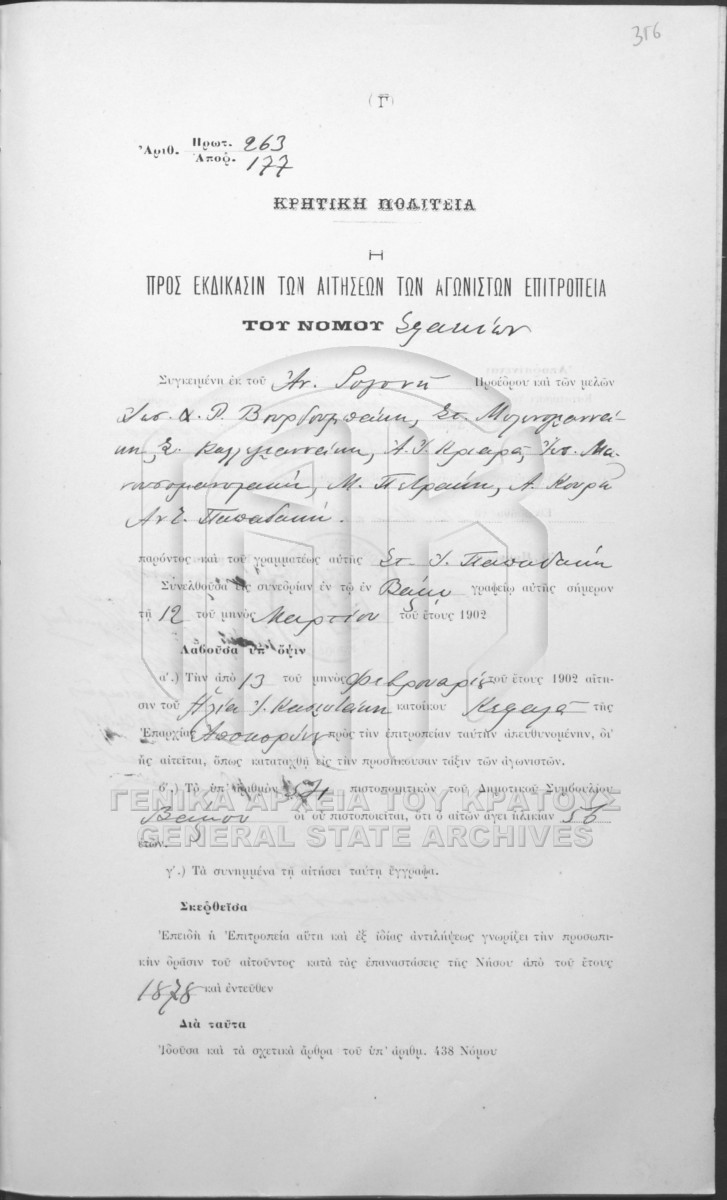 316
(Γ)
Ἀριθ. Πρωτ. 263
Ἀποφ. 177
ΚΡΗΤΙΚΗ ΠΟΛΙΤΕΙΑ
Η
ΠΡΟΣ ΕΚΔΙΚΑΣΙΝ ΤΩΝ ΑΙΤΗΣΕΩΝ ΤΩΝ ΑΓΩΝΙΣΤΩΝ ΕΠΙΤΡΟΠΕΙΑ
ΤΟΥ ΝΟΜΟΥ Σφακίων
Συγκειμένη ἐκ τοῦ Ἀν. Προέδρου καὶ τῶν μελῶν
Βουρδουμπάκη, Στ.
Μ. Πετράκη, Α. Κουρῆ
Παπαδάκη.
παρόντος καὶ τοῦ γραμματέως αὐτῆς Στ. Ι. Παπαδάκη
Συνελθοῦσα εἰς συνεδρίαν ἐν τῷ ἐν Βάμῳ γραφείῳ αὐτῆς σήμερον
τῇ 12 τοῦ μηνὸς Μαρτίου τοῦ ἔτους 1902
Λαβοῦσα ὑπ' ὄψιν
α'.) Τὴν ἀπὸ 13 τοῦ μηνὸς Φεβρουαρίου τοῦ ἔτους 1902 αἴτη-
σιν τοῦ Ἠλία Ι. κατοίκου Κεφαλᾶ τῆς
Ἐπαρχίας Ἀποκορώνου πρὸς τὴν ἐπιτροπείαν ταύτην ἀπευθυνομένην, δι'
ἧς αἰτεῖται, ὅπως καταταχθῇ εἰς τὴν προσήκουσαν τάξιν τῶν ἀγωνιστῶν.
β'.) Τὸ ὑπ' ἀριθμὸν 571 πιστοποιητικὸν τοῦ Δημοτικοῦ Συμβουλίου
Βάμου δι' οὗ πιστοποιεῖται, ὅτι ὁ αἰτῶν ἄγει ἡλικίαν 56
ἐτῶν.
ΓΕΝΙΚΑ ΑΡΧΕΙΑ ΤΟΥ ΚΡΑΤΟΥΣ
GENERAL STATE ARCHIVES
γ'.) Τὰ συνημμένα τῇ αἰτήσει ταύτῃ ἔγγραφα.
Σκεφθεῖσα
Ἐπειδὴ ἡ Ἐπιτροπεία αὕτη καὶ ἐξ ἰδίας ἀντιλήψεως γνωρίζει τὴν προσωπι-
κὴν δρᾶσιν τοῦ αἰτοῦντος κατὰ τὰς ἐπαναστάσεις τῆς Νήσου ἀπὸ τοῦ ἔτους
1878 καὶ ἐντεῦθεν
Διὰ ταῦτα
Ἰδοῦσα καὶ τὰ σχετικὰ ἄρθρα τοῦ ὑπ' ἀριθμ. 438 Νόμου